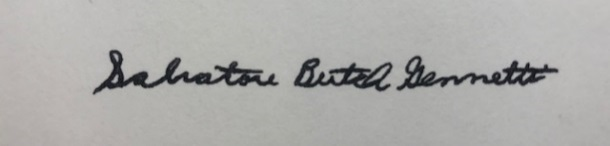 Salvatore Butch Gennetti